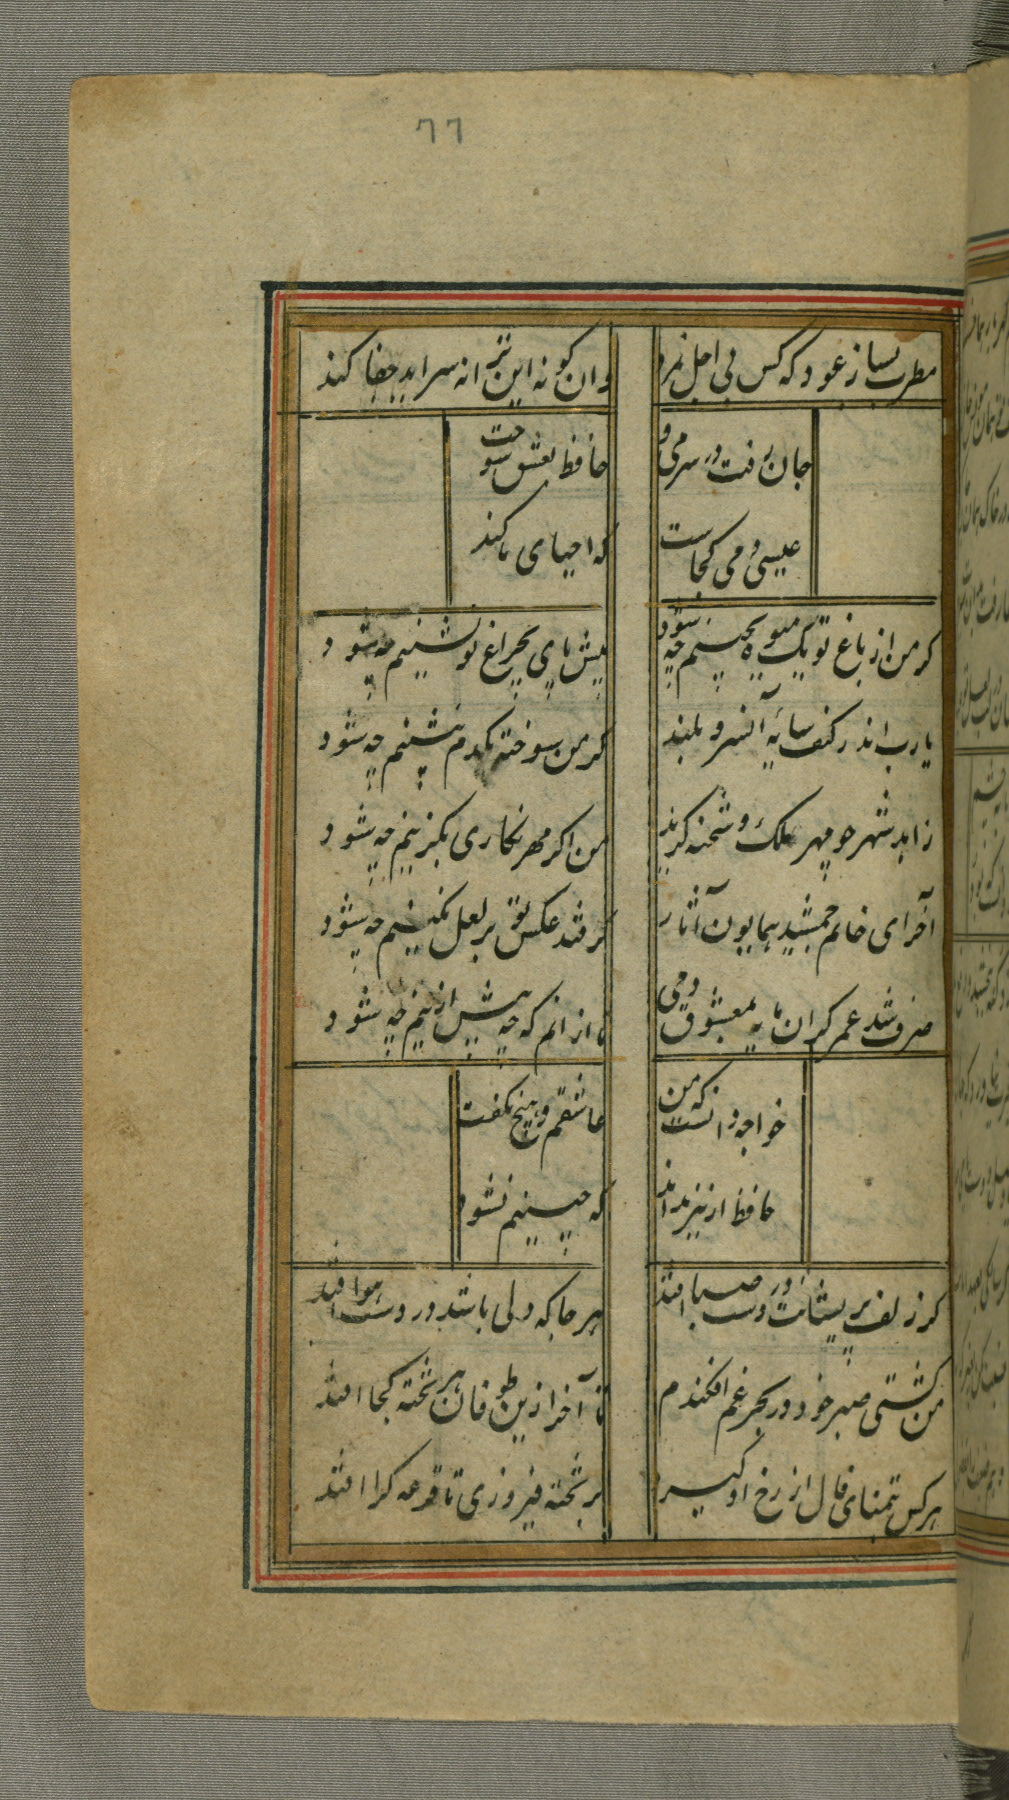 77
مطرب بساز عود که کس بی اجل نمرد
وان کو نه این ترانه سراید خطا کند
جان رفت در سر می و
حافظ بعشق سوخت
عیسی دمی کجاست
که احیای ما کند
کر من از باغ تو یک میوه بچینم چه شود
پیش پای بچراغ تو نشینم چه شود
یارب اندر کنف سایۀ آنسرو بلند
کر من سوخته یکدم بنشینم چه شود
زاهد شهر چو مهر ملک و شحنه کزید
من اکر مهر نکاری بکزینم چه شود
آخر ای خاتم جمشید همایون آثار
کر فتد عکس تو بر لعل نکینم چه شود
صرف شد عمر کرانمایه بمعشوق و می
تا از آنم که چه پیش ازینم چه شود
خواجه دانست که من
عاشقم و هیچ نکفت
حافظ ار نیز بداند
که چنینم نشود
کر زلف پریشانت در دست صبا افتد
هر جا که دلی باشد در دست هوا افتد
من کشتی صبر خود در بحر غم افکندم
تا آخر ازین طوفان هر تخته کجا افتد
هر کس بتمنای فال از رخ او کیرد
بر تخته فیروزی تا قرعه کرا افتد